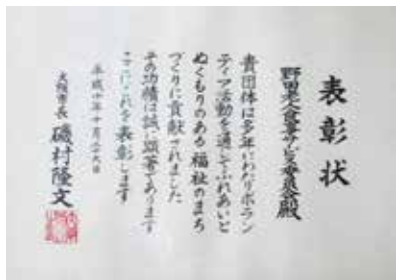 表彰状
野田老人食事サービス委員会殿
貴団体は多年にわたりボラン
ティア活動を通じてふれあいと
ぬくもりのある福祉のまち
づくりに貢献されました
その功績は誠に顕著であります
ここにこれを表彰します
平成十年十月二十九日
大阪市長 磯村隆文